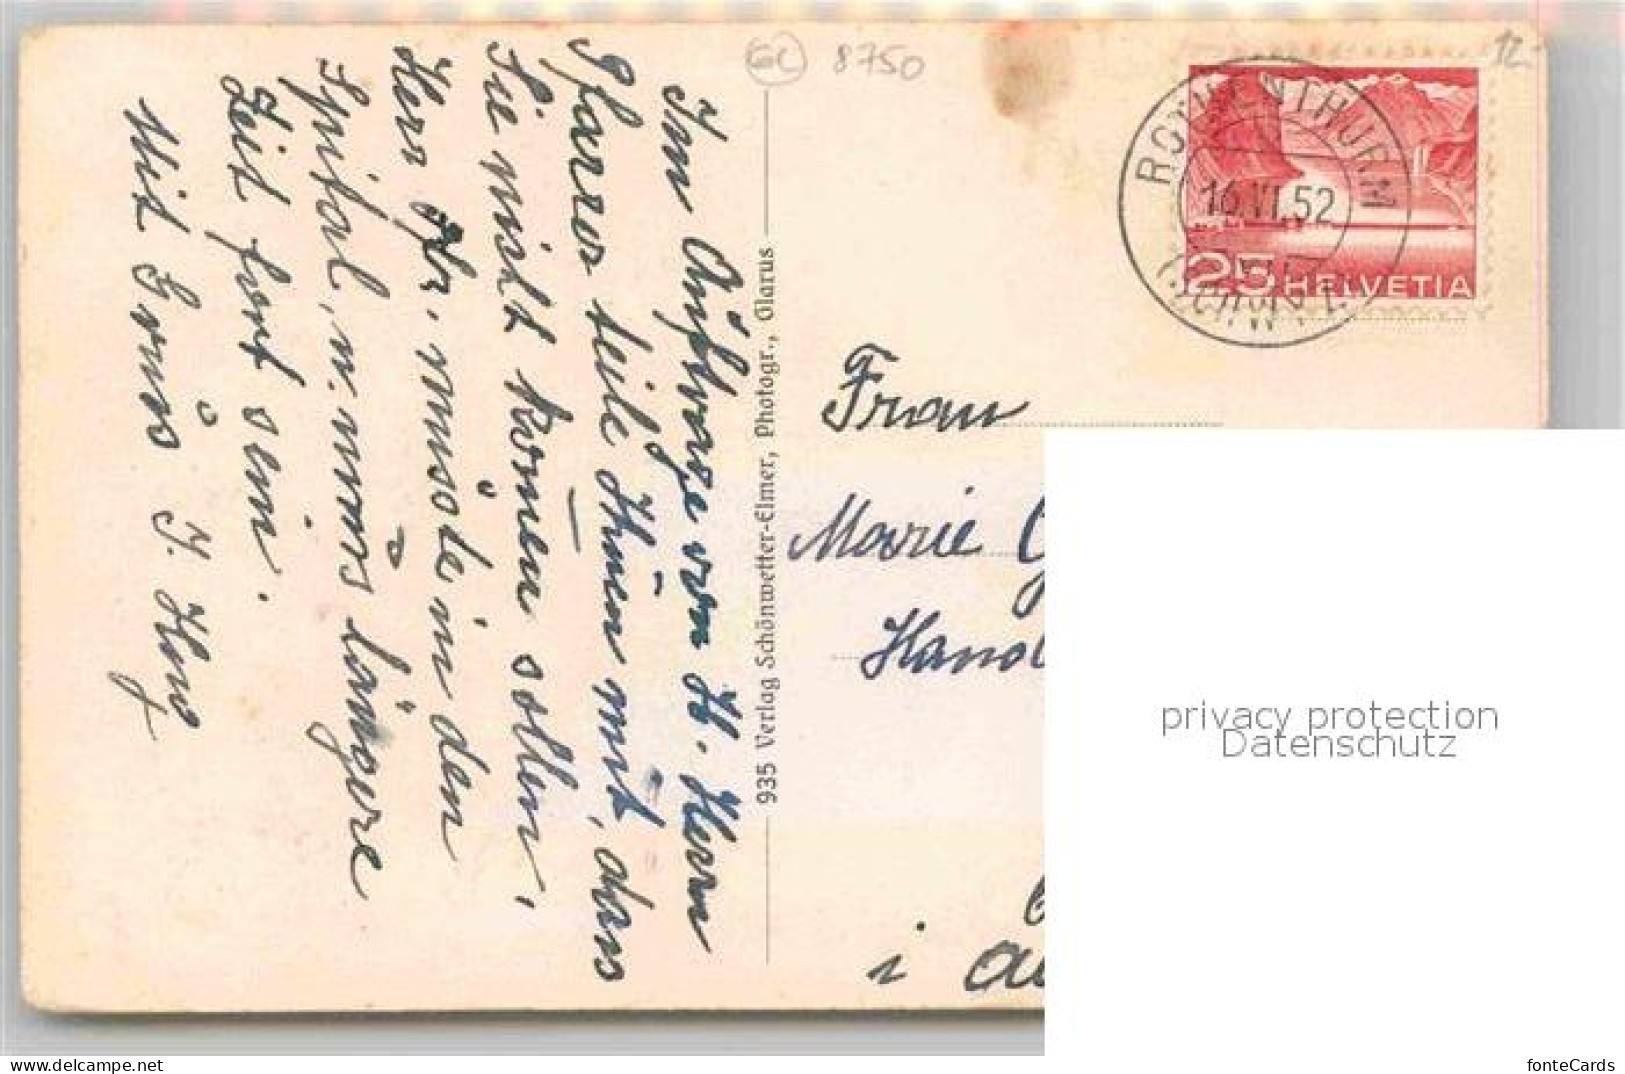 GL 8750
12.-
ROTHENTHURM
16.VI.52
(SCHWYZ)
25 HELVETIA
Im Auftrage von H. Herrn
Pfarrer teile Ihnen mit, dass
Sie nicht komen sollen,
Herr Pfr. musste in den
Spital, u. muss längere
Zeit fort sein.
Mit Gruss J. Hug
935 Verlag Schönwetter-Elmer, Photogr., Glarus
Frau
Marie
i
privacy protection
Datenschutz
fonteCards